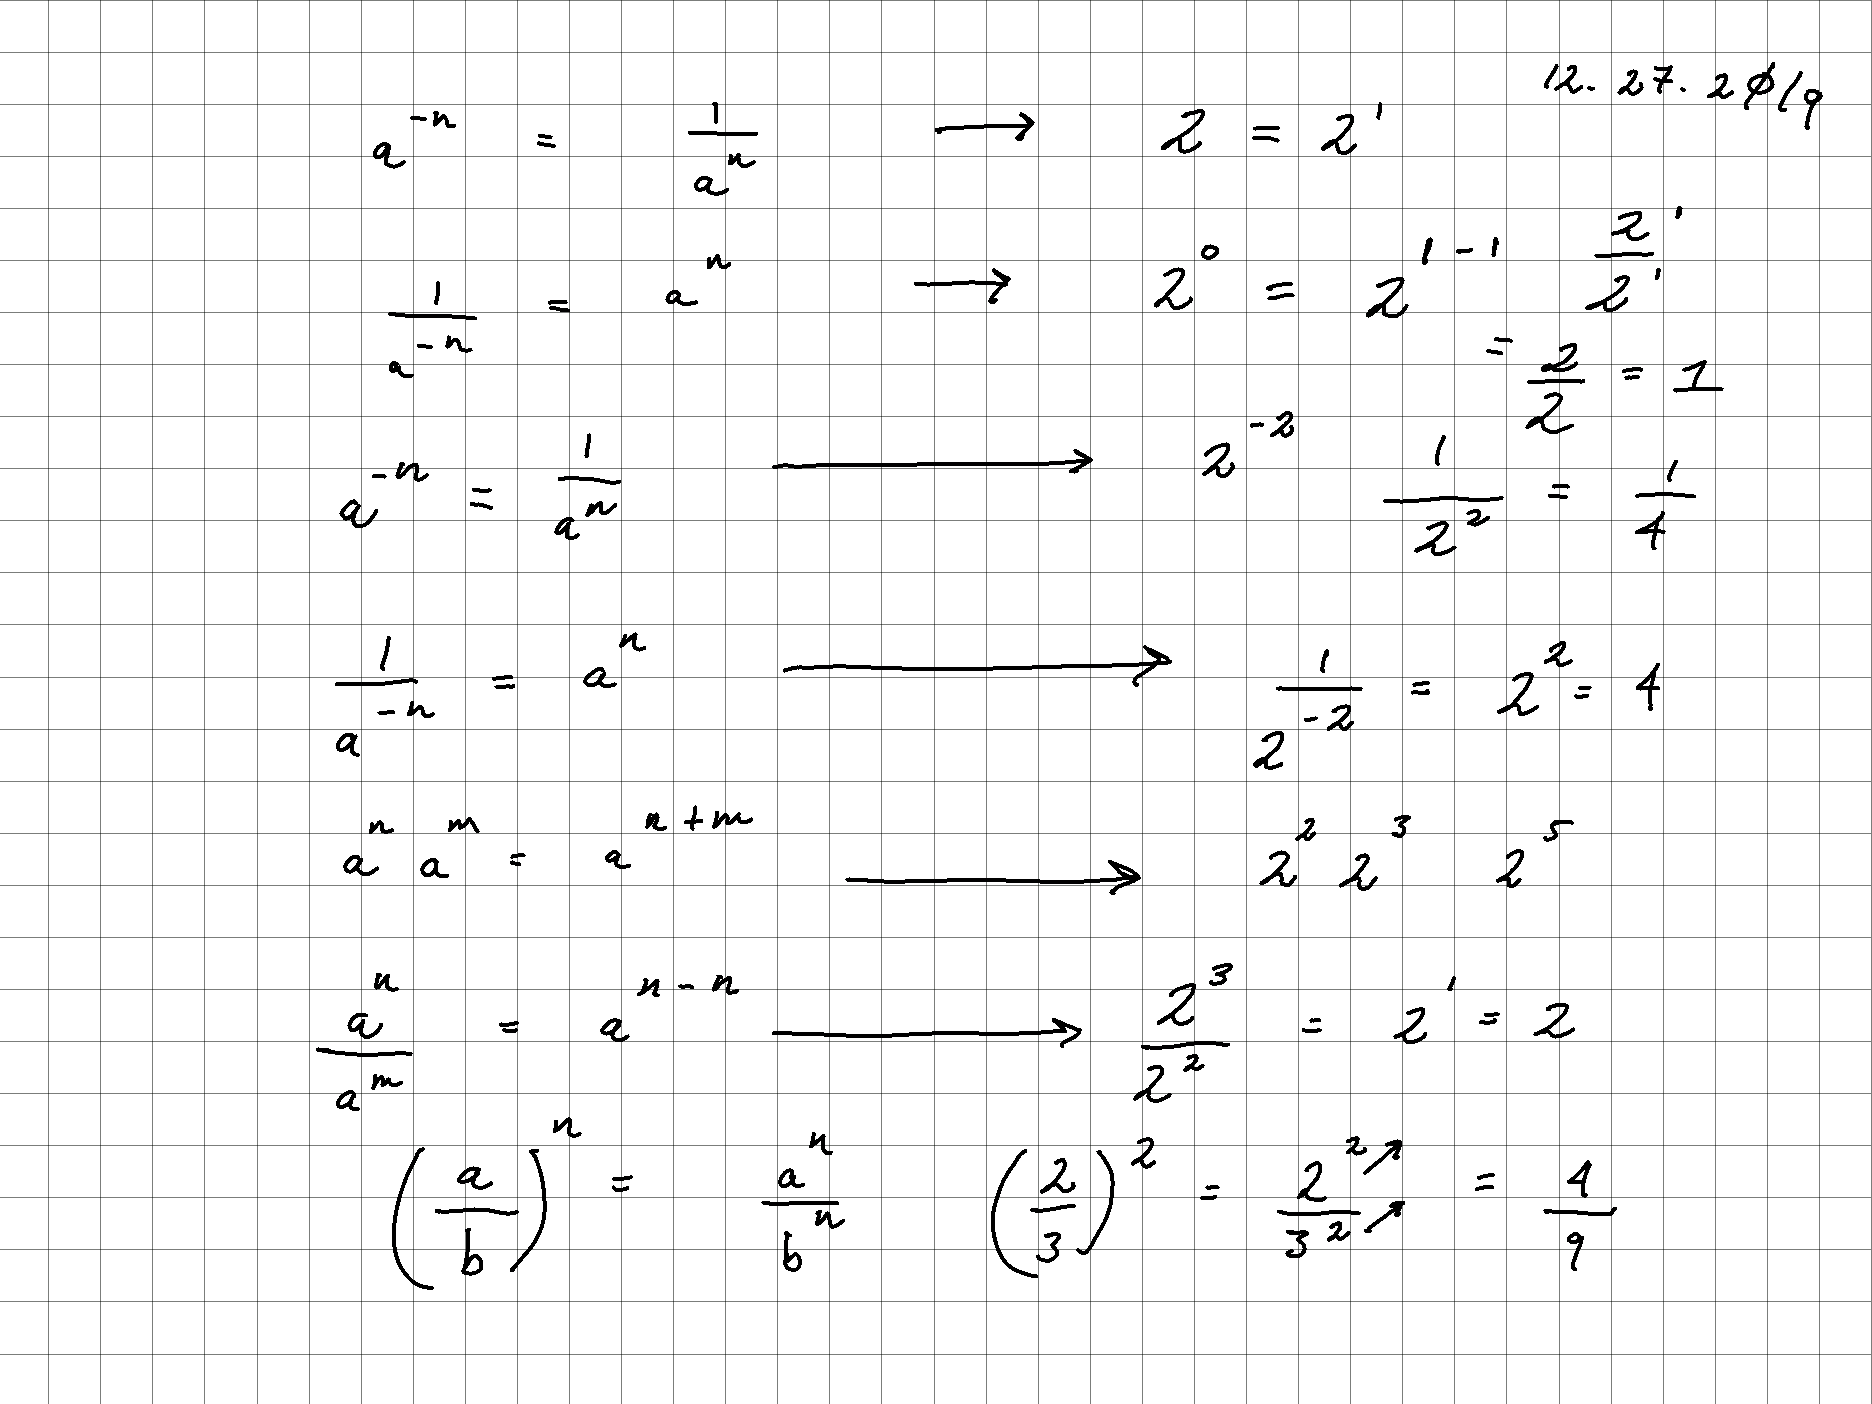 12.27.2019
a^{-n} = \frac{1}{a^n} → 2 = 2^1
\frac{1}{a^{-n}} = a^n → 2^0 = 2^{1-1} \frac{2^1}{2^1}
= \frac{2}{2} = 1
a^{-n} = \frac{1}{a^n} → 2^{-2} \frac{1}{2^2} = \frac{1}{4}
\frac{1}{a^{-n}} = a^n → \frac{1}{2^{-2}} = 2^2 = 4
a^n a^m = a^{n+m} → 2^2 2^3 2^5
\frac{a^n}{a^m} = a^{n-n} → \frac{2^3}{2^2} = 2^1 = 2
(\frac{a}{b})^n = \frac{a^n}{b^n} (\frac{2}{3})^2 = \frac{2^2↗}{3^2↗} = \frac{4}{9}